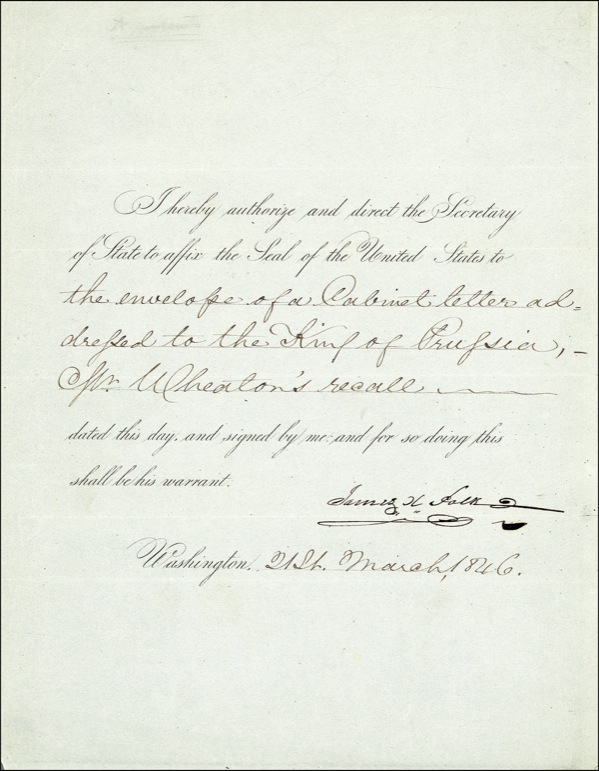 I hereby authorize and direct the Secretary
of State to affix the Seal of the United States to
the envelope of a Cabinet letter ad=
dressed to the King of Prussia, –
Mr. Wheaton's recall
dated this day, and signed by me: and for so doing this
shall be his warrant.
James K. Polk
Washington, 21st. March, 1846.